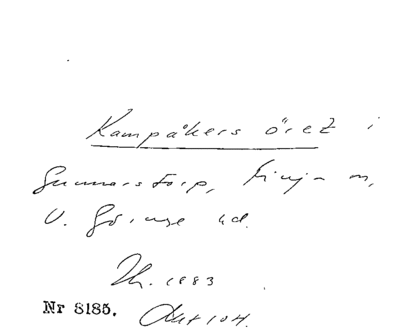 Kampåkers öret i
Gunnarstorp, Finja m,
V. Göinge hd.
Th. 1883
Nr 8185. Akt 104.